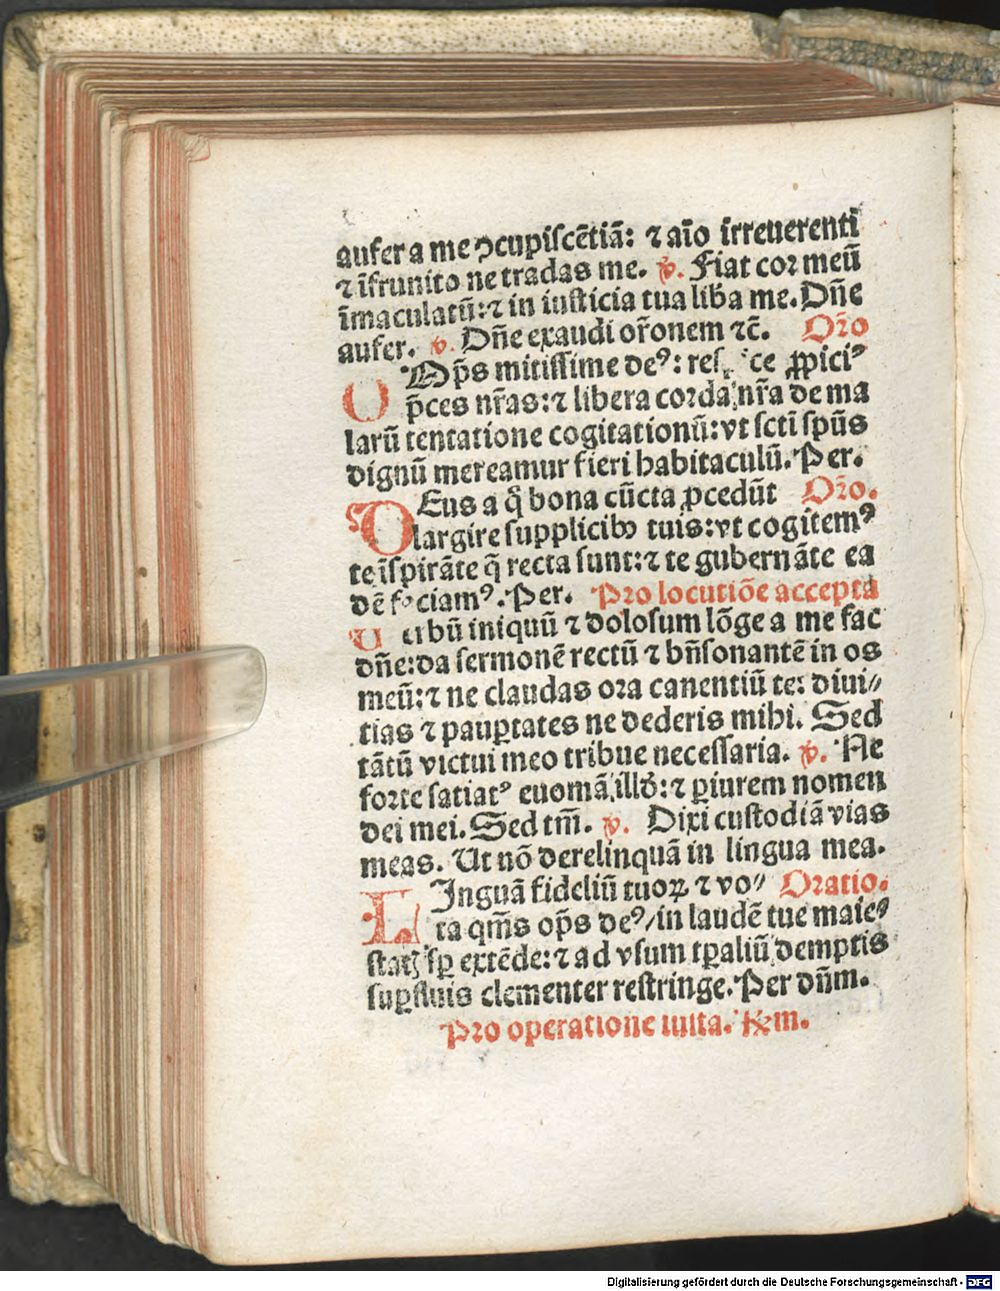 aufer a me ꝯcupiſcētiā: ⁊ aīo irreuerenti
⁊ īfrunito ne tradas me. ℣. Fiat coꝛ meū
īmaculatū:⁊ in iuſticia tua liba me. Dn̄e
aufer. ℣. Dn̄e exaudi or̄onem ⁊c̄. Oꝛ̄o
OMp̄s mitiſſime deꝰ: reſ ce ꝓpiciꝰ
p̄ces nr̄as:⁊ libera coꝛda nr̄a de ma
larū tentatione cogitationū: vt ſcti ſpūs
dignū mereamur fieri habitaculū. Per.
DEus a q̄ bona cūcta ꝓcedūt Oꝛ̄o.
largire ſupplicibꝰ tuis: vt cogitemꝰ
te īſpirāte q̄ recta ſunt:⁊ te gubernāte ea
dē faciamꝰ. Per. Pꝛo locutiōe accepta
Uerbū iniquū ⁊ doloſum lōge a me fac
dn̄e: da ſermonē rectū ⁊ bn̄ſonantē in os
meū:⁊ ne claudas oꝛa canentiū te: diui⸗
tias ⁊ pauꝑtates ne dederis mihi. Sed
tātū victui meo tribue neceſſaria. ℣. Ne
foꝛte ſatiatꝰ euomā illď:⁊ ꝑiurem nomen
dei mei. Sed tm̄. ℣. Dixi cuſtodiā vias
meas. Ut nō derelinquā in lingua mea.
LInguā fideliū tuoꝝ ⁊ vo⸗ Oꝛatio.
ta qm̄s op̄s deꝰ/in laudē tue maie⸗
ſtatꝭ ſꝑ extēde:⁊ ad vſum tꝑaliū demptis
ſuꝑfluis clementer reſtringe. Per dn̄m.
Pꝛo operatione iuſta. Rm.
Digitalisierung gefördert durch die Deutsche Forschungsgemeinschaft - DFG